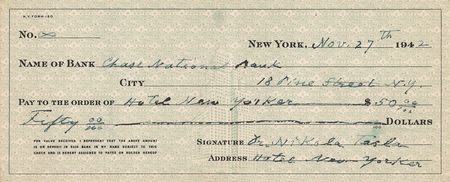 N.Y. FORM 180
No. ∞
NEW YORK, Nov. 27th 1942
NAME OF BANK Chase National Bank
CITY 18 Pine Street N.Y.
PAY TO THE ORDER OF Hotel New Yorker $50 00/100
Fifty 00/100 DOLLARS
FOR VALUE RECEIVED I REPRESENT THAT THE ABOVE AMOUNT
IS ON DEPOSIT IN SAID BANK IN MY NAME SUBJECT TO THIS
CHECK AND IS HEREBY ASSIGNED TO PAYEE OR HOLDER HEREOF
SIGNATURE Dr. Nikola Tesla
ADDRESS Hotel New Yorker